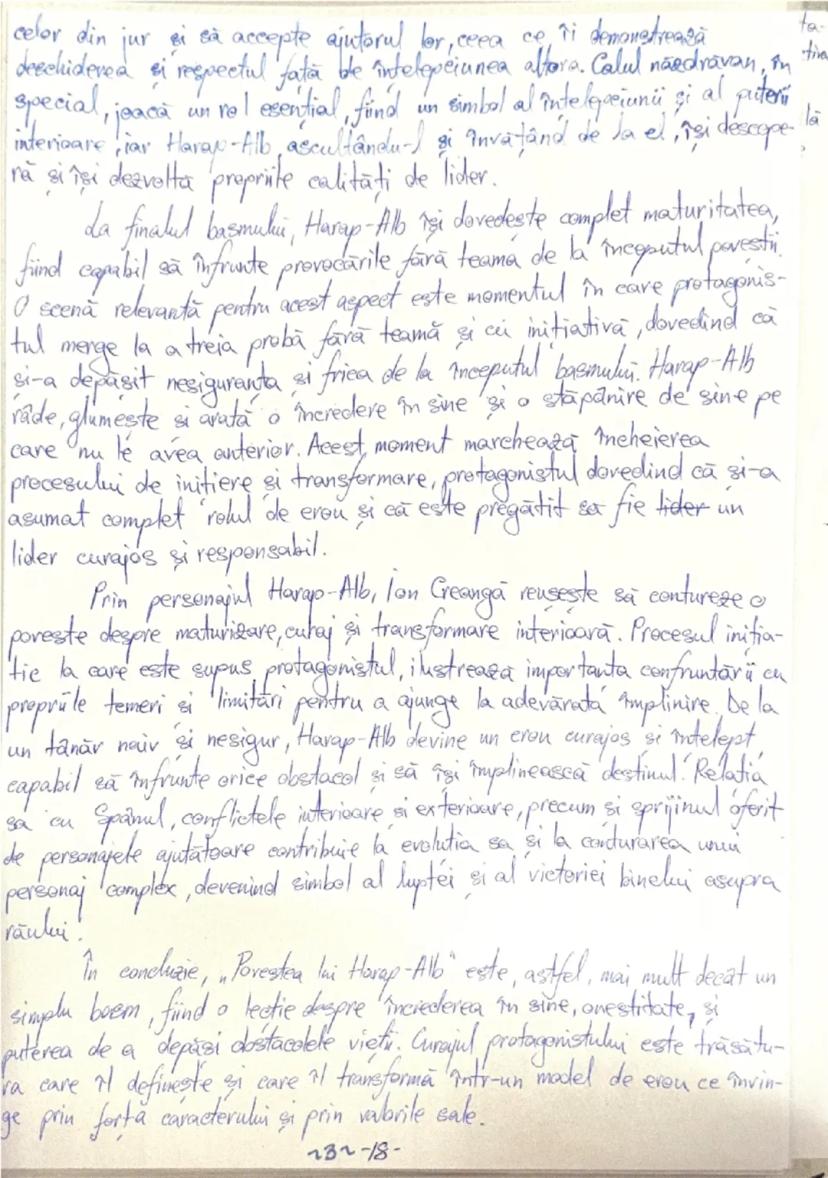 celor din jur și să accepte ajutorul lor, ceea ce îi demonstrează
deschiderea și respectul față de înțelepciunea altora. Calul năzdrăvan, în
special, joacă un rol esențial, fiind un simbol al înțelepciunii și al puterii
interioare, iar Harap-Alb ascultându-l și învățând de la el, își descope-
ră și își dezvoltă propriile calități de lider.
La finalul basmului, Harap-Alb își dovedește complet maturitatea,
fiind capabil să înfrunte provocările fără teama de la începutul poveștii.
O scenă relevantă pentru acest aspect este momentul în care protagonis-
tul merge la a treia probă fără teamă și cu inițiativă, dovedind că
și-a depășit nesiguranța și frica de la începutul basmului. Harap-Alb
râde, glumește și arată o încredere în sine și o stăpânire de sine pe
care nu le avea anterior. Acest moment marchează încheierea
procesului de inițiere și transformare, protagonistul dovedind că și-a
asumat complet rolul de erou și că este pregătit sa fie lider un
lider curajos și responsabil.
Prin personajul Harap-Alb, Ion Creangă reușește să contureze o
poveste despre maturizare, curaj și transformare interioară. Procesul iniția-
tic la care este supus protagonistul, ilustrează importanta confruntării cu
propriile temeri si limitări pentru a ajunge la adevărata împlinire. De la
un tânăr naiv și nesigur, Harap-Alb devine un erou curajos și înțelept,
capabil să înfrunte orice obstacol și să își împlinească destinul. Relatia
sa cu Spânul, conflictele interioare si exterioare, precum si sprijinul oferit
de personajele ajutătoare contribuie la evolutia sa și la conturarea unui
personaj complex, devenind simbol al luptei și al victoriei binelui asupra
răului.
În concluzie, „Povestea lui Harap-Alb" este, astfel, mai mult decât un
simplu basm, fiind o lectie despre încrederea în sine, onestitate, și
puterea de a depăși obstacolele vieții. Curajul protagonistului este trăsătu-
ra care îl definește și care îl transformă într-un model de erou ce învin-
ge prin forța caracterului și prin valorile sale.
~3~ -18-